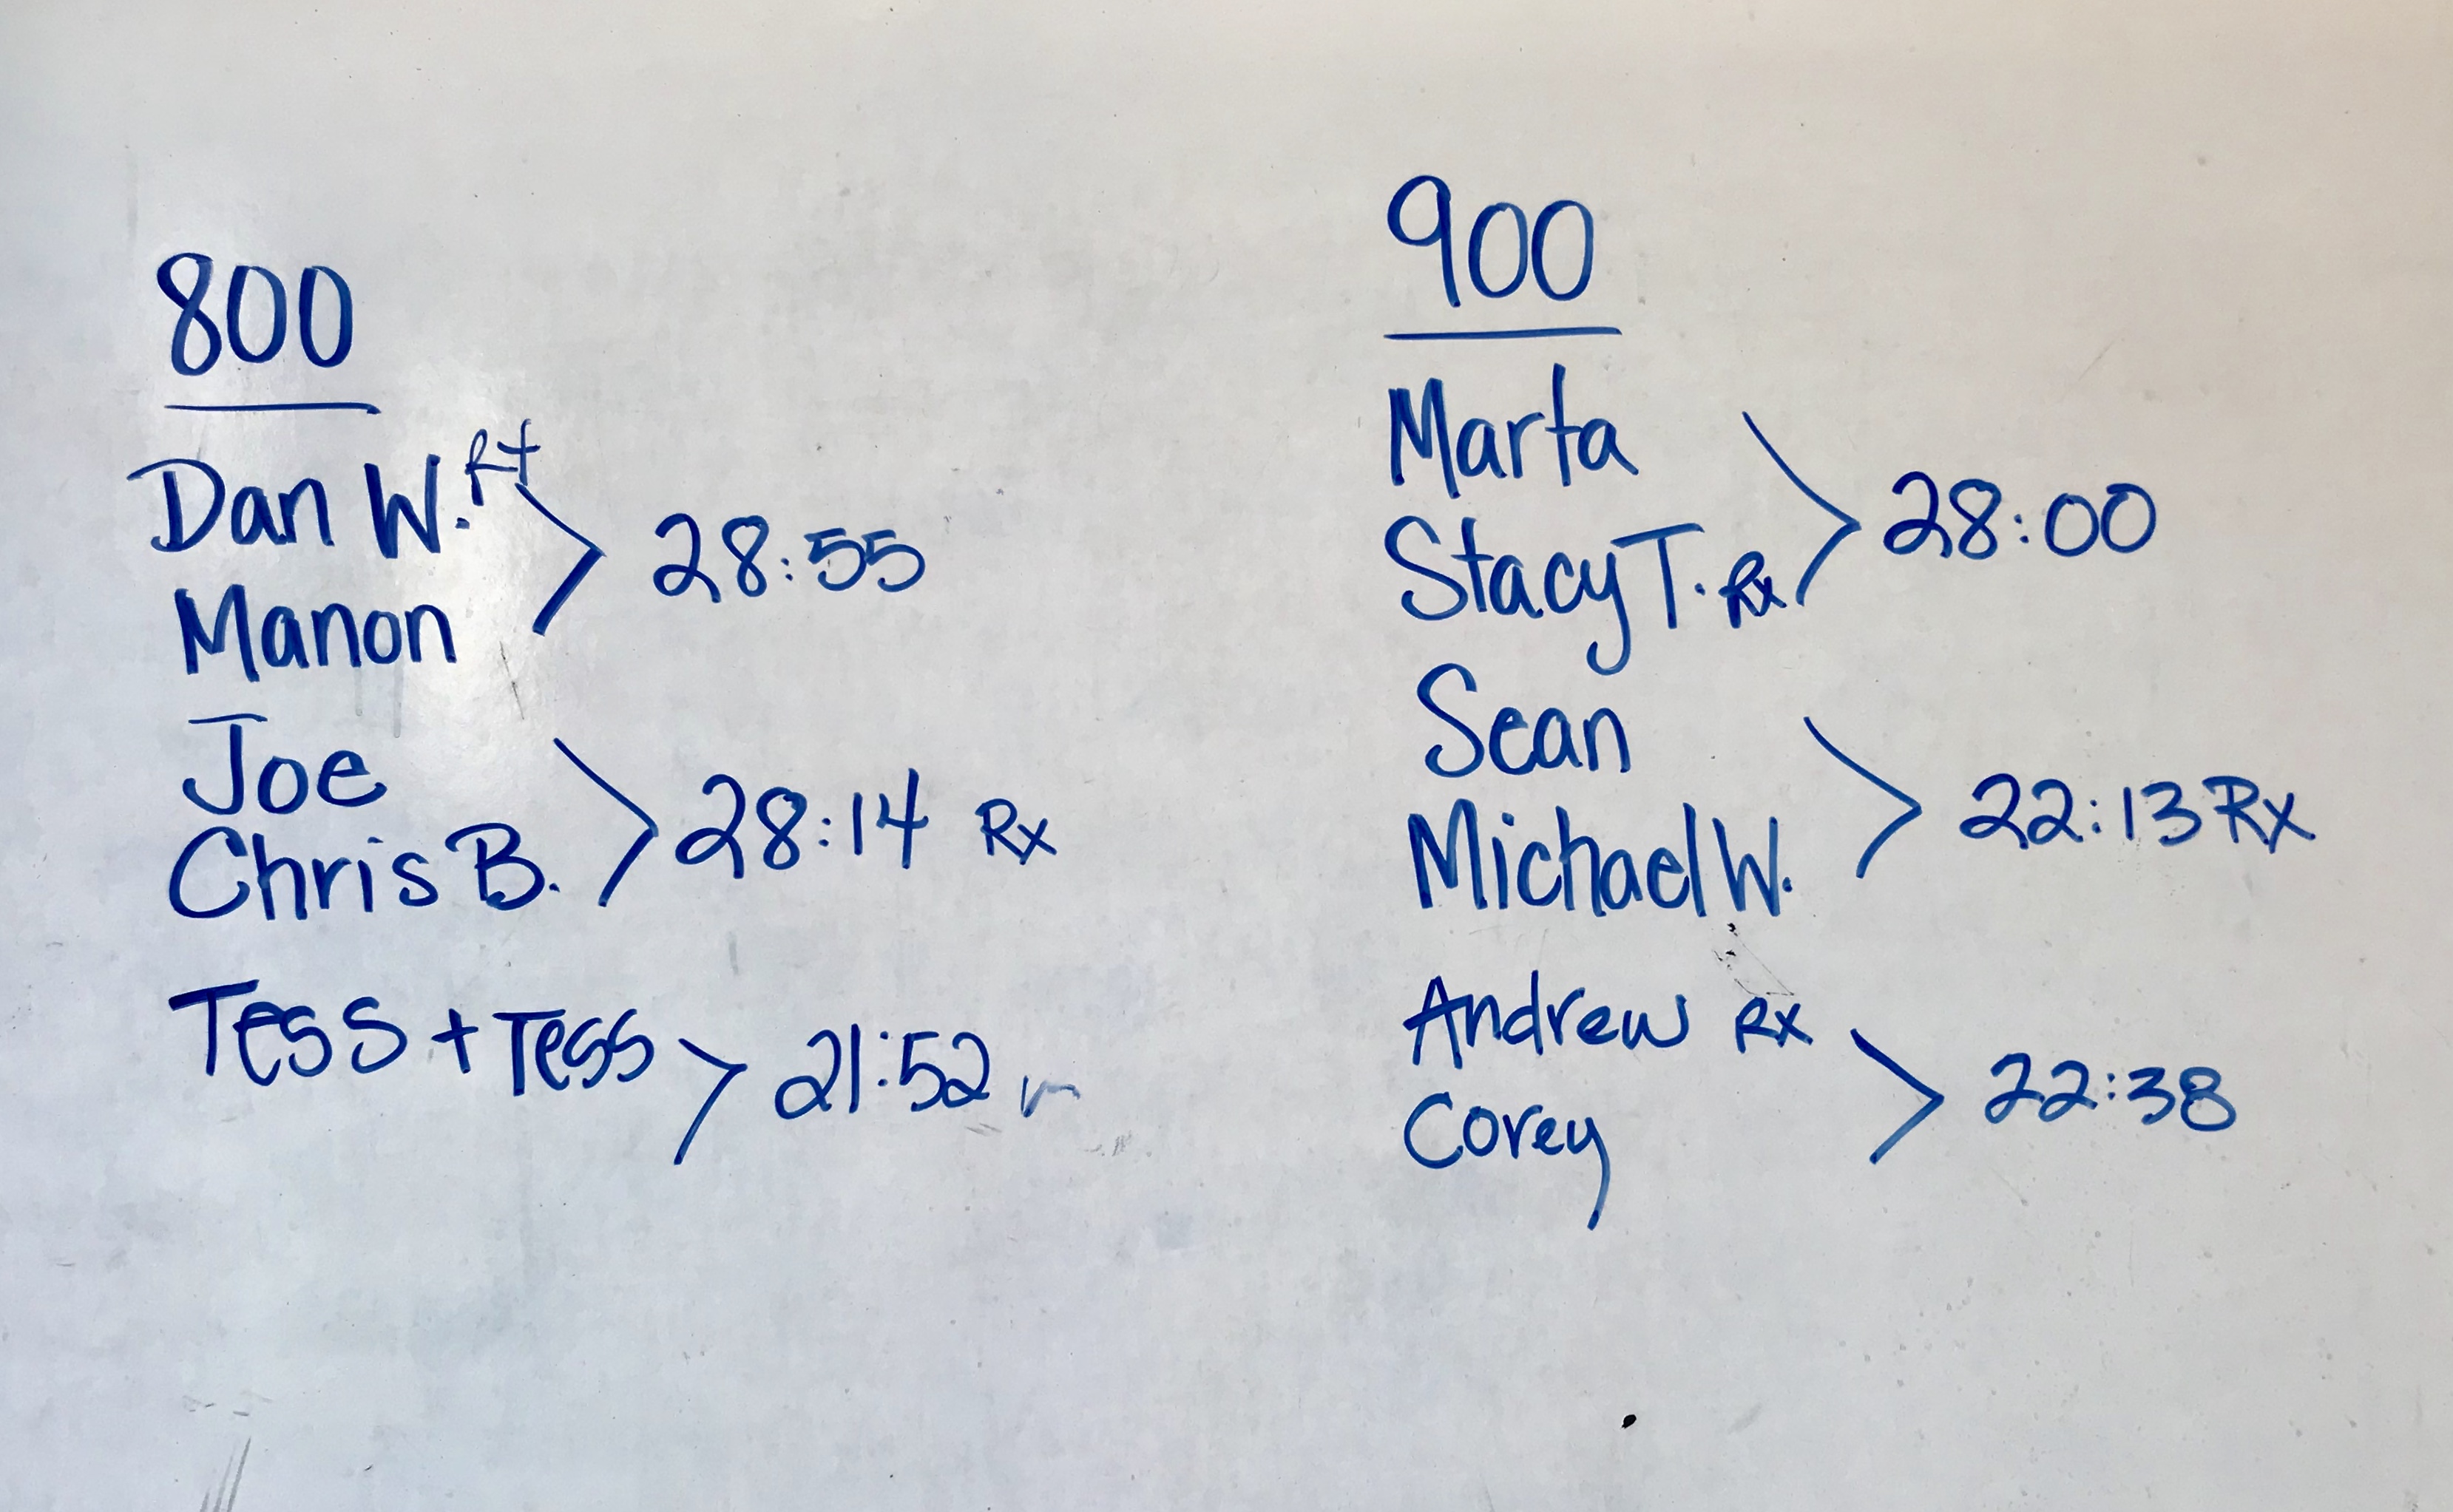 800
Dan W. RX
Manon
28:55
Joe
Chris B.
28:14 Rx
Tess + Tess 21:52
900
Marta
Stacy T. Rx
28:00
Sean
Michael W.
22:13 Rx
Andrew RX
Corey
22:38